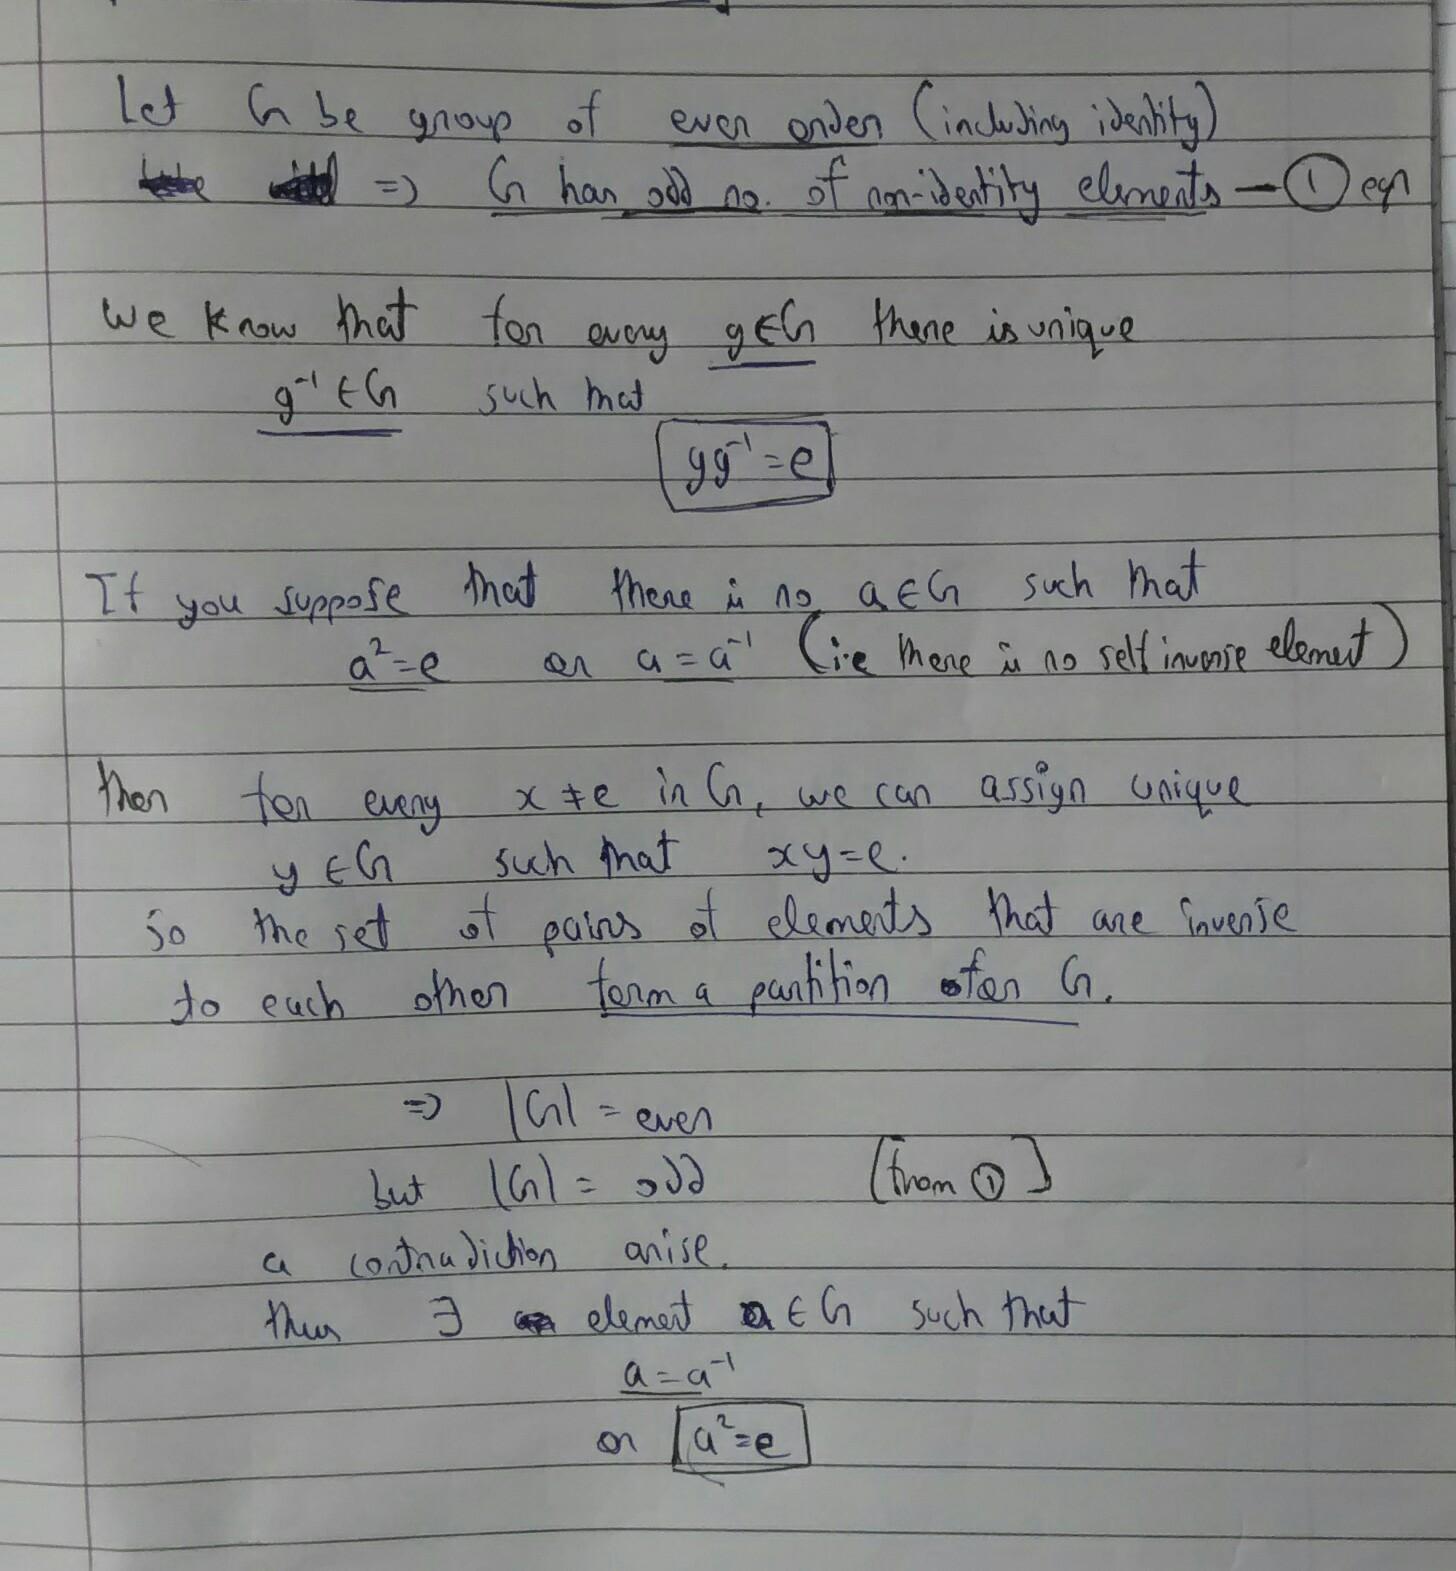 Let G be group of even order (including identity)
=> G has odd no. of non-identity elements — ① eqn
We know that for every g∈G there is unique
g⁻¹∈G such that
gg⁻¹=e
If you suppose that there is no a∈G such that
a²=e or a=a⁻¹ (i.e there is no self inverse element)
then for every x≠e in G, we can assign unique
y∈G such that xy=e.
So the set of pairs of elements that are inverse
to each other form a partition for G.
=> |G| = even
but |G| = odd [from ①]
a contradiction arise.
thus ∃ element a∈G such that
a=a⁻¹
or a²=e